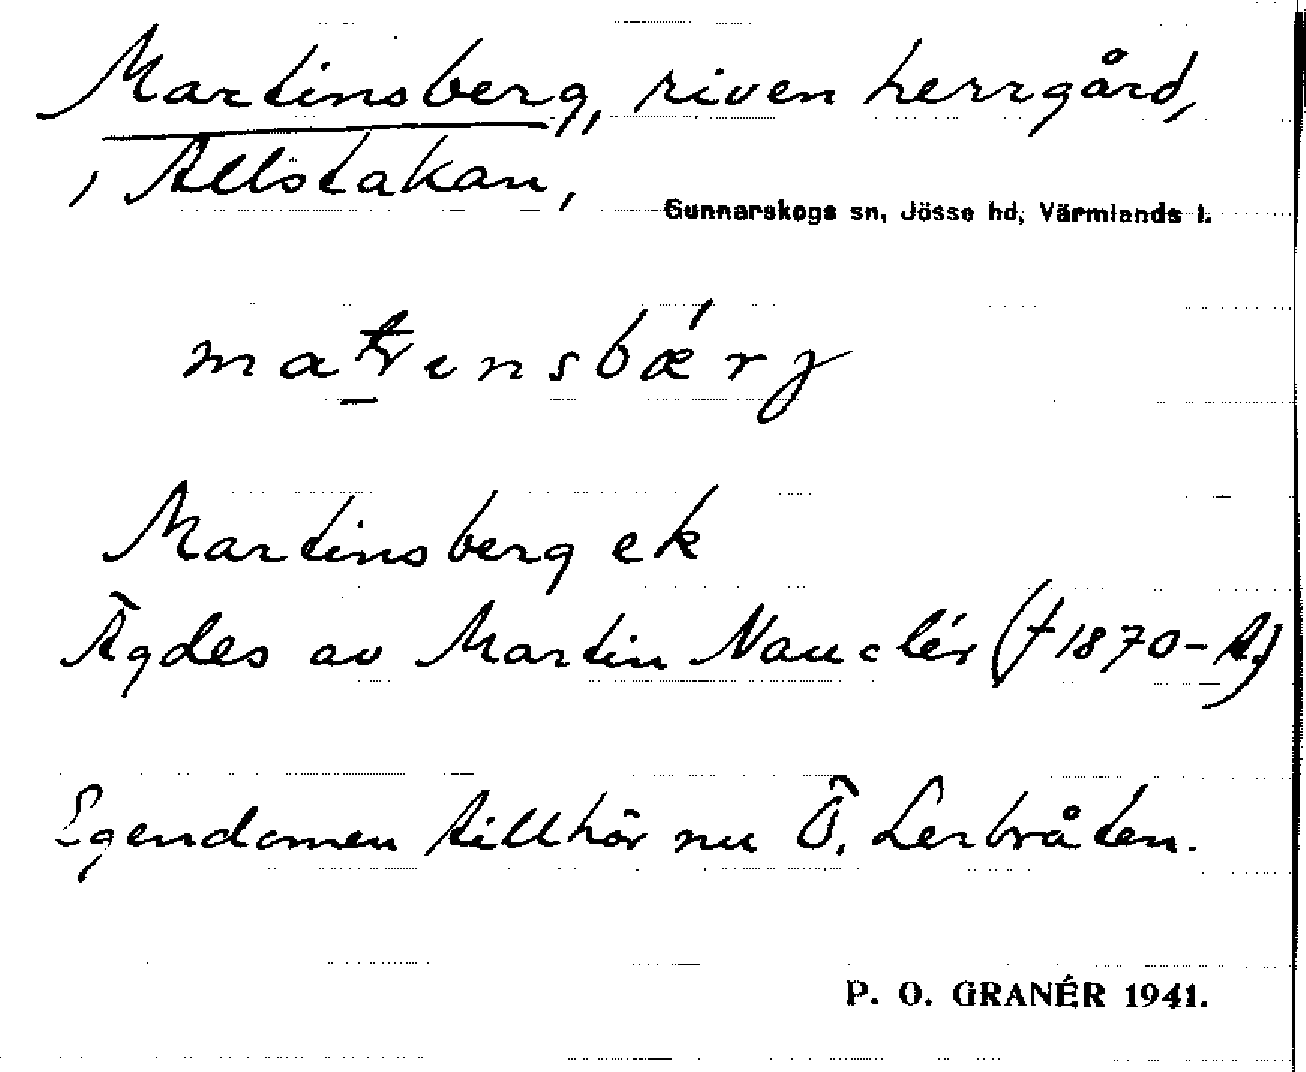 Martinsberg, riven herrgård,
i Allstakan,
Gunnarskogs sn, Jösse hd, Värmlands l.
Martinsberg ek
Ägdes av Martin Nauclér († 1870-t.)
Egendomen tillhör nu Ö. Lerbråten.
P. O. GRANÉR 1941.